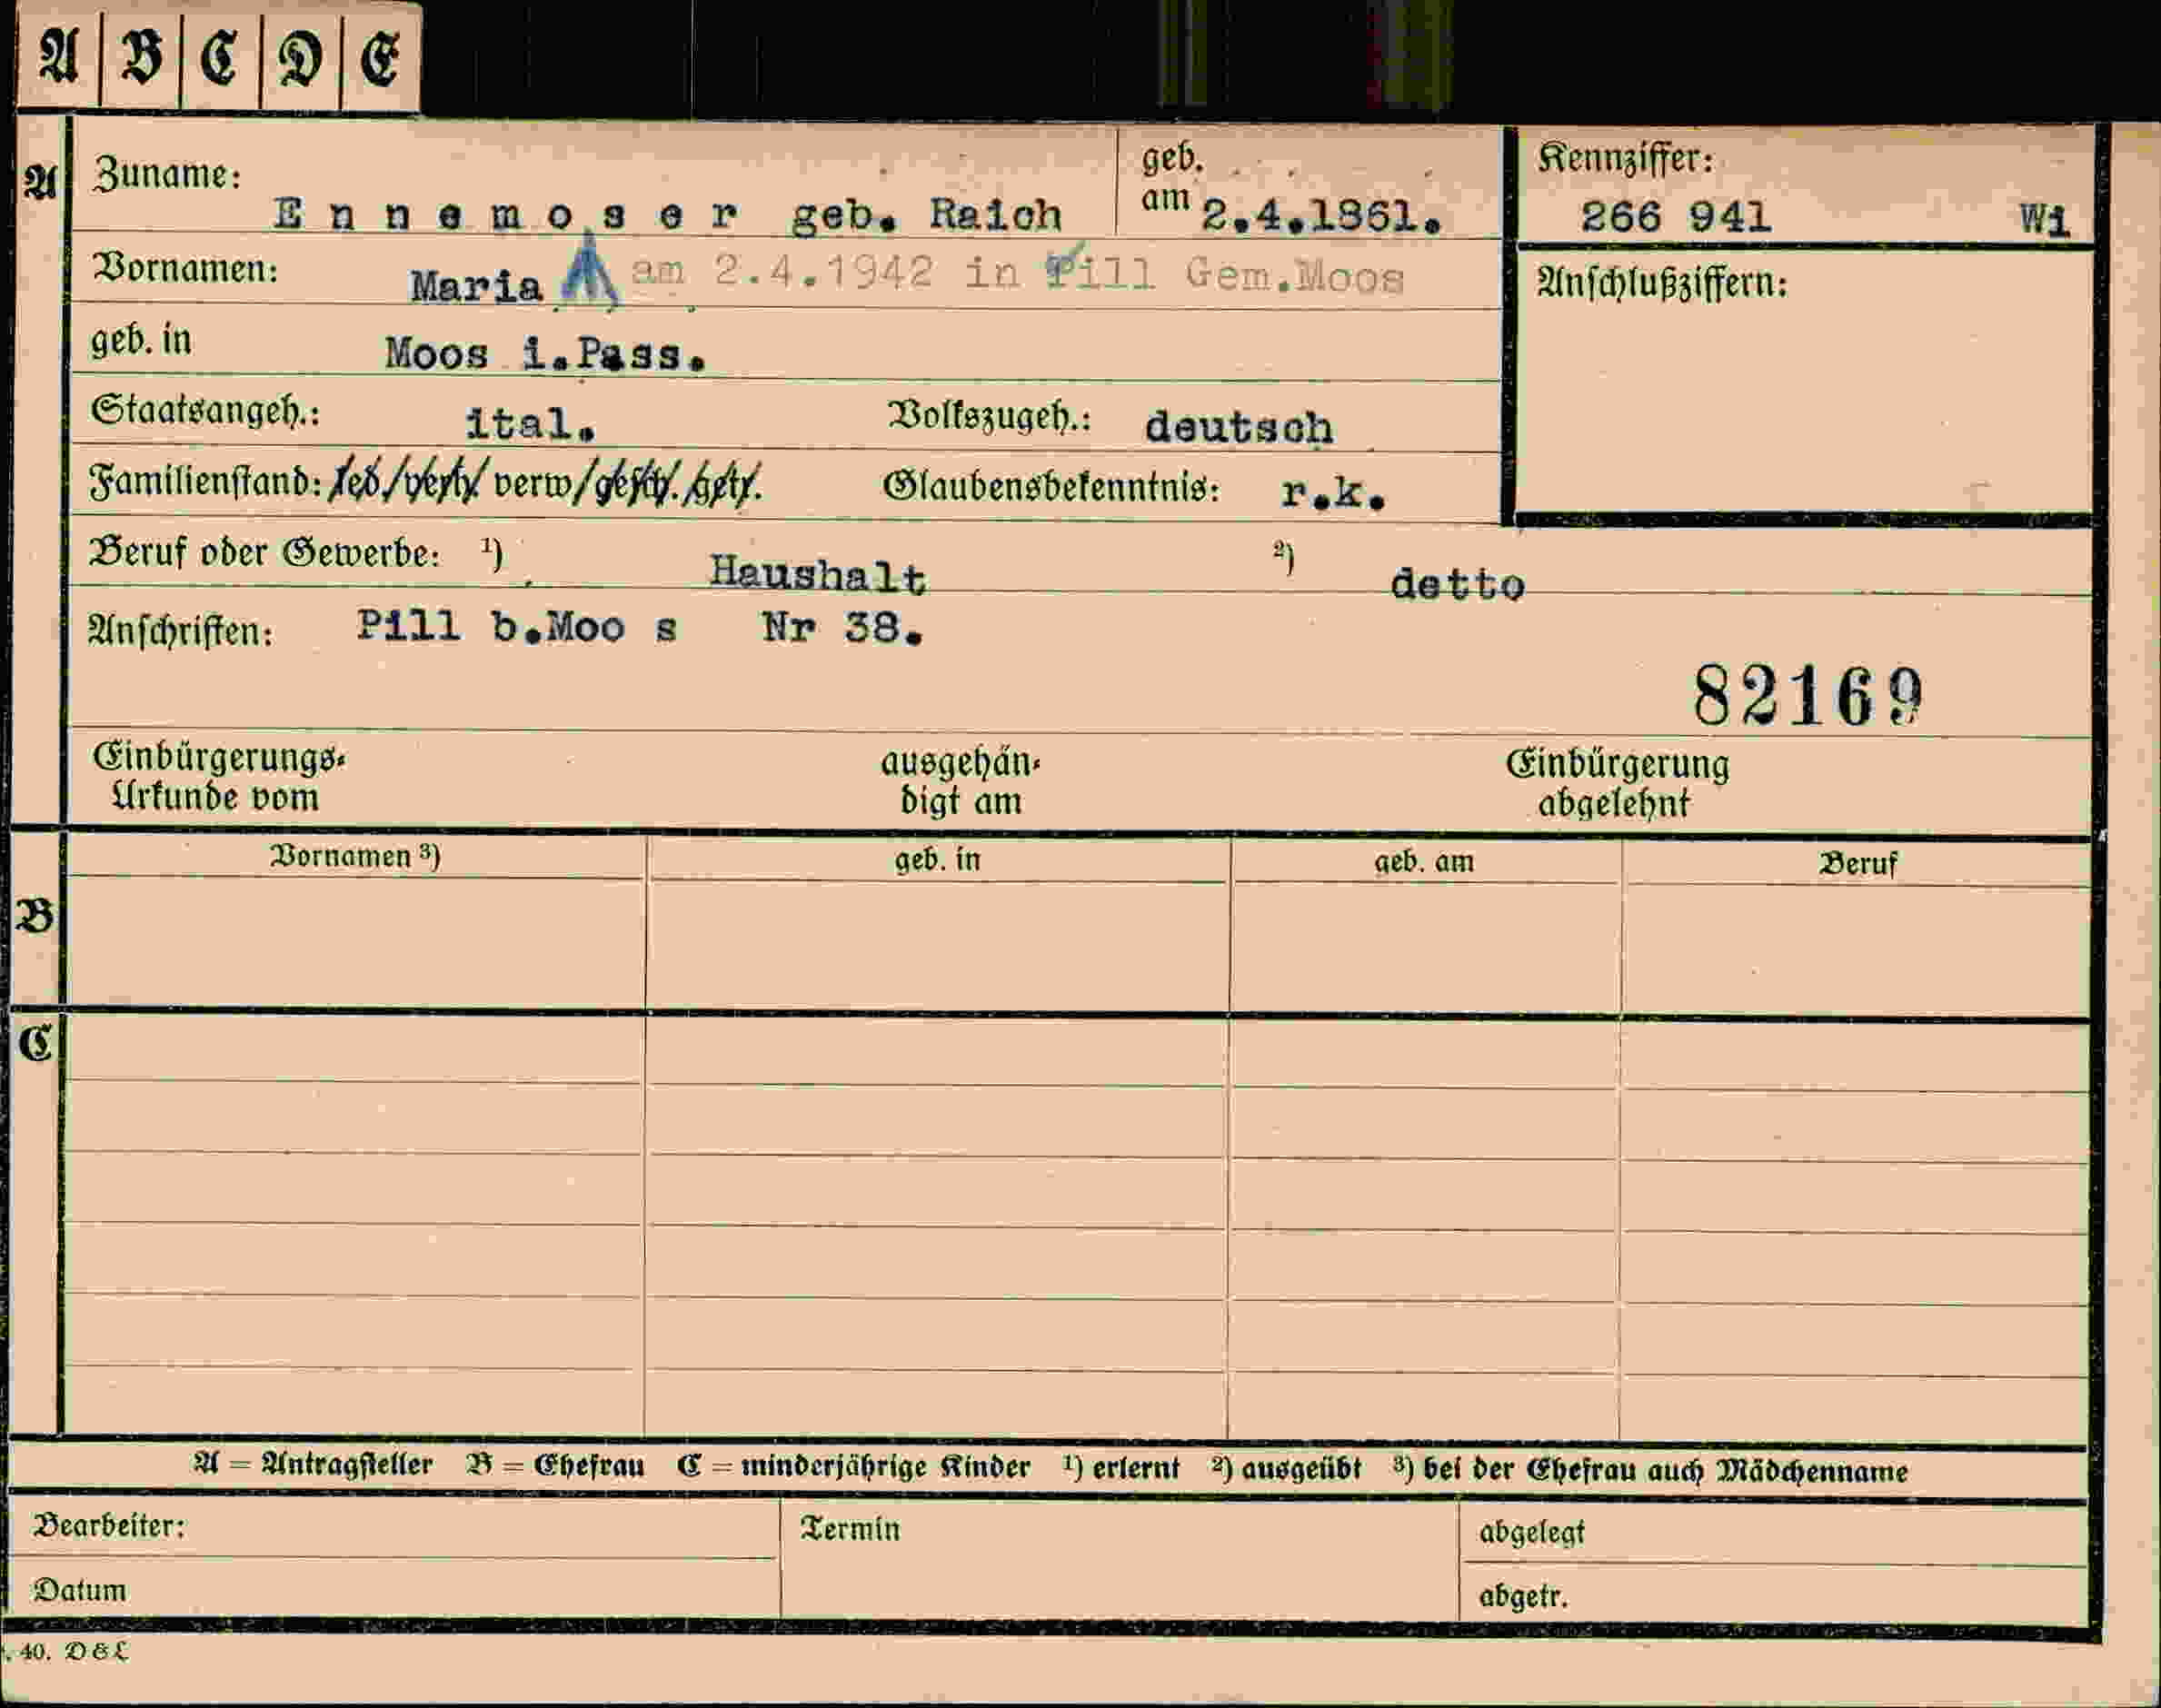 A B C D E
A Zuname: Ennemoser geb. Raich geb. am 2.4.1861. Kennziffer: 266 941 Wi
Vornamen: Maria am 2.4.1942 in Pill Gem.Moos Anschlußziffern:
geb. in Moos i.Pass.
Staatsangeh.: ital. Volkszugeh.: deutsch
Familienstand: led./verh./verw/gesch./getr. Glaubensbekenntnis: r.k.
Beruf oder Gewerbe: 1) Haushalt 2) detto
Anschriften: Pill b.Moo s Nr 38.
82169
Einbürgerungs-
Urkunde vom
ausgehän-
digt am
Einbürgerung
abgelehnt
B Vornamen 3) geb. in geb. am Beruf
C
A = Antragsteller B = Ehefrau C = minderjährige Kinder 1) erlernt 2) ausgeübt 3) bei der Ehefrau auch Mädchenname
Bearbeiter: Termin abgelegt
Datum abgetr.
40. D & L